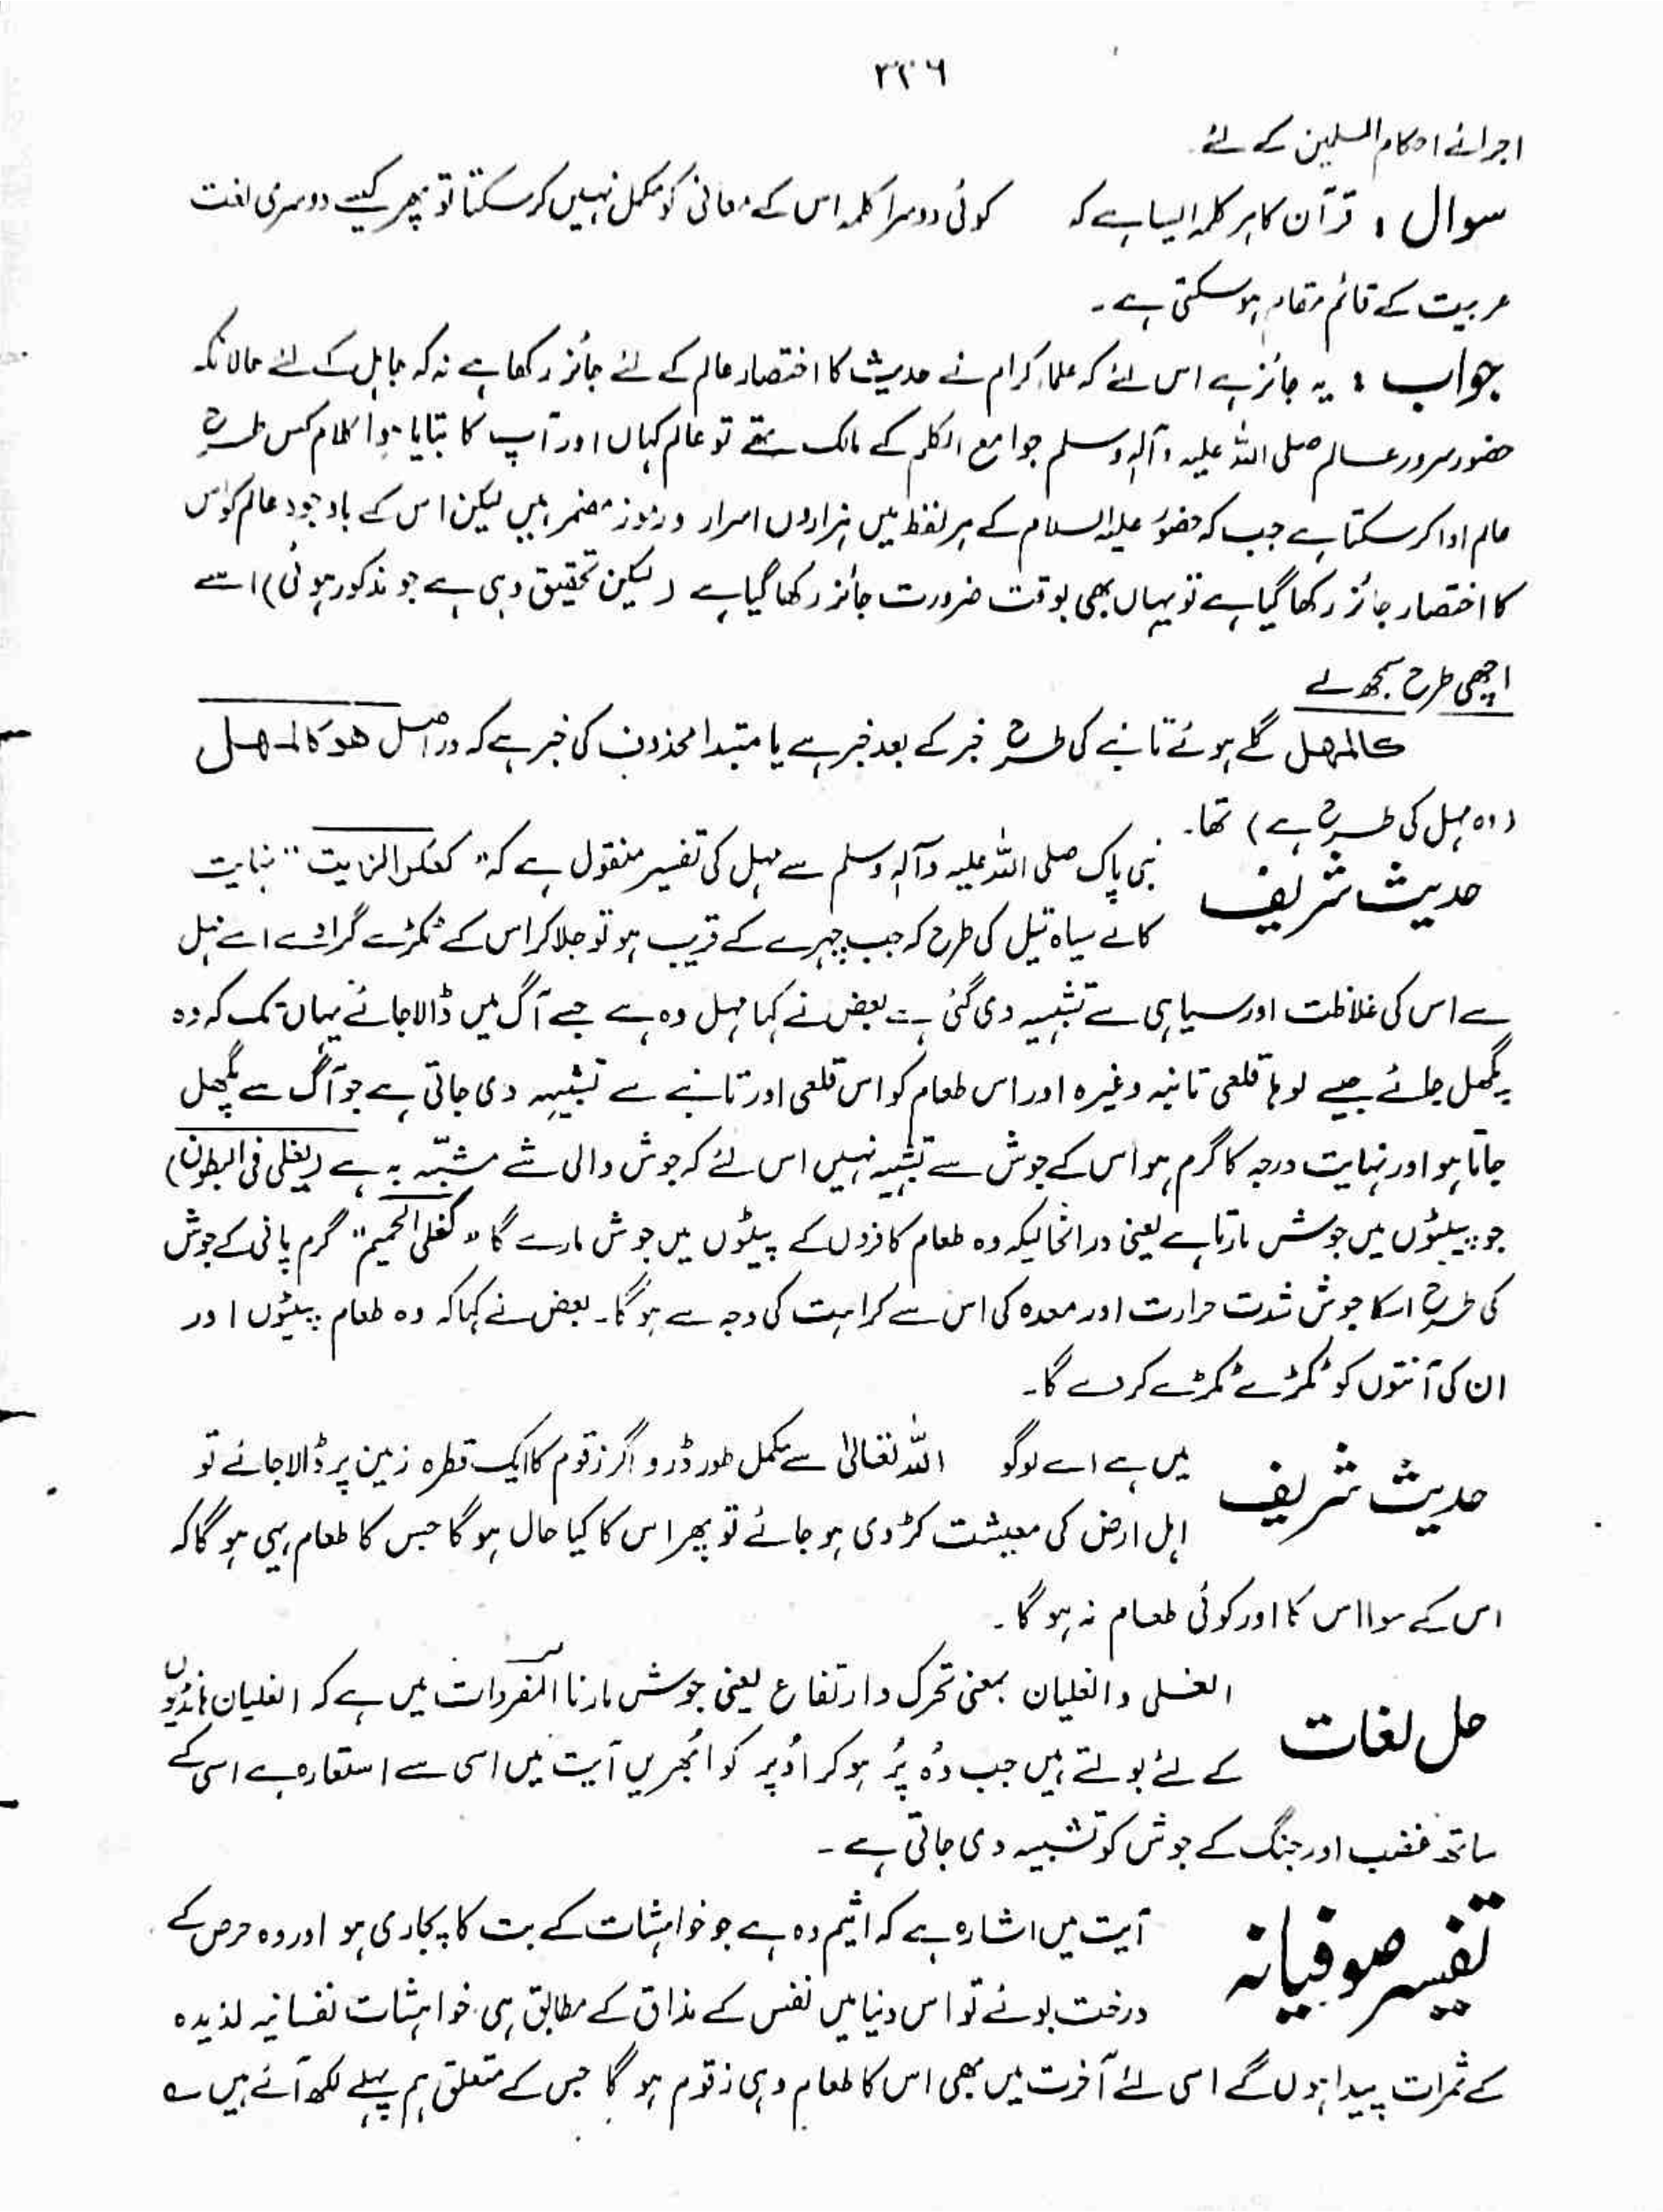 ۳۲۶
اجرائے احکام المسلمین کے لئے۔
سوال : قرآن کا ہر کلمہ ایسا ہے کہ کوئی دوسرا کلمہ اس کے معانی کو مکمل نہیں کر سکتا تو پھر کیسے دوسری لغت
عربیت کے قائم مقام ہو سکتی ہے۔
جواب : یہ جائز ہے اس لئے کہ علماء کرام نے حدیث کا اختصار عالم کے لئے جائز رکھا ہے نہ کہ جاہل کے لئے حالانکہ
حضور سرور عالم صلی اللہ علیہ وآلہ وسلم جوامع الکلم کے مالک تھے تو عالم کہاں اور آپ کا بتایا ہوا کلام کس طرح
عالم ادا کر سکتا ہے جب کہ حضور علیہ السلام کے ہر لفظ میں ہزاروں اسرار و رموز مضمر ہیں لیکن اس کے باوجود عالم کو اس
کا اختصار جائز رکھا گیا ہے تو یہاں بھی بوقت ضرورت جائز رکھا گیا ہے (لیکن تحقیق وہی ہے جو مذکور ہوئی) اسے
اچھی طرح سمجھ لے
کالمھل گلے ہوئے تانبے کی طرح خبر کے بعد خبر ہے یا مبتدا محذوف کی خبر ہے کہ در اصل ھو کالمھل
(وہ مہل کی طرح ہے) تھا۔
حدیث شریف نبی پاک صلی اللہ علیہ وآلہ وسلم سے مہل کی تفسیر منقول ہے کہ "کعکر الزیت" نہایت
کالے سیاہ تیل کی طرح کہ جب چہرے کے قریب ہو تو جلا کر اس کے ٹکڑے گرا دے اسے مہل
سے اس کی غلاظت اور سیاہی سے تشبیہ دی گئی ہے بعض نے کہا مہل وہ ہے جسے آگ میں ڈالا جائے یہاں تک کہ وہ
پگھل جائے جیسے لوہا قلعی تانبہ وغیرہ اور اس طعام کو اس قلعی اور تانبے سے تشبیہہ دی جاتی ہے جو آگ سے پگھل
جاتا ہو اور نہایت درجہ کا گرم ہو اس کے جوش سے تشبیہ نہیں اس لئے کہ جوش والی شے مشبّہ بہ ہے (یغلی فی البطون)
جو پیٹوں میں جوش مارتا ہے یعنی درانحالیکہ وہ طعام کافروں کے پیٹوں میں جوش مارے گا "کغلی الحمیم" گرم پانی کے جوش
کی طرح اسکا جوش شدت حرارت اور معدہ کی اس سے کراہت کی وجہ سے ہو گا۔ بعض نے کہا کہ وہ طعام پیٹوں اور
ان کی آنتوں کو ٹکڑے ٹکڑے کر دے گا۔
حدیث شریف میں ہے اے لوگو اللہ تعالیٰ سے مکمل طور ڈرو اگر زقوم کا ایک قطرہ زمین پر ڈالا جائے تو
اہل ارض کی معیشت کڑوی ہو جائے تو پھر اس کا کیا حال ہو گا جس کا طعام یہی ہو گا کہ
اس کے سوا اس کا اور کوئی طعام نہ ہو گا۔
حل لغات الغلی والغلیان بمعنی تحرک و ارتفاع یعنی جوش مارنا المفردات میں ہے کہ الغلیان ہانڈیوں
کے لئے بولتے ہیں جب وہ پُر ہو کر اُوپر کو اُبھریں آیت میں اسی سے استعارہ ہے اسی کے
ساتھ غضب اور جنگ کے جوش کو تشبیہ دی جاتی ہے۔
تفسیر صوفیانہ آیت میں اشارہ ہے کہ اثیم وہ ہے جو خواہشات کے بت کا پجاری ہو اور وہ حرص کے
درخت بوئے تو اس دنیا میں نفس کے مذاق کے مطابق ہی خواہشات نفسانیہ لذیذہ
کے ثمرات پیدا ہوں گے اسی لئے آخرت میں بھی اس کا طعام وہی زقوم ہو گا جس کے متعلق ہم پہلے لکھ آئے ہیں ے